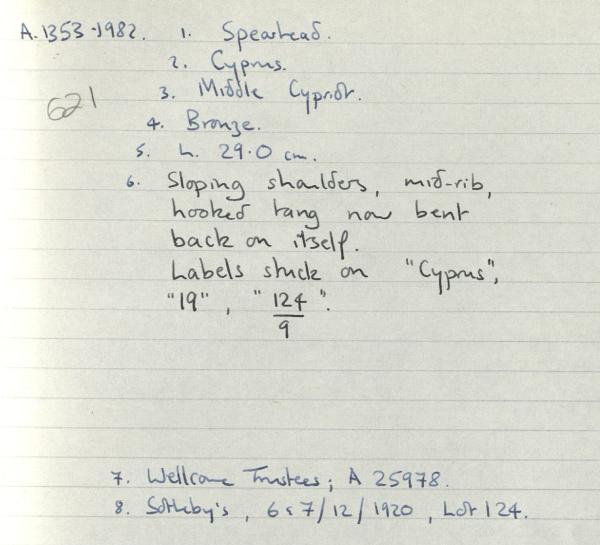 A.1353-1982. 1. Spearhead.
2. Cyprus.
621
3. Middle Cypriot.
4. Bronze.
5. L. 29.0 cm.
6. Sloping shoulders, mid-rib,
hooked tang now bent
back on itself.
Labels stuck on "Cyprus",
"19", "124/9".
7. Wellcome Trustees; A 25978.
8. Sotheby's, 6 & 7/12/1920, Lot 124.